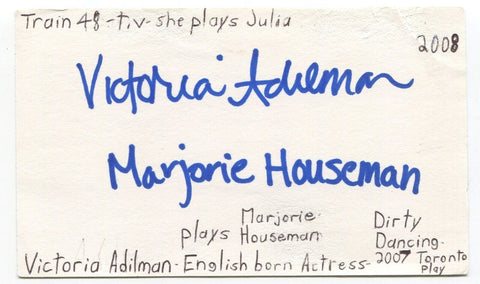 Train 48 - t.v - she plays Julia
2008
Victoria Adilman
Marjorie Houseman
plays Marjorie Houseman
Dirty Dancing -
Victoria Adilman - English born Actress - 2007 Toronto Play